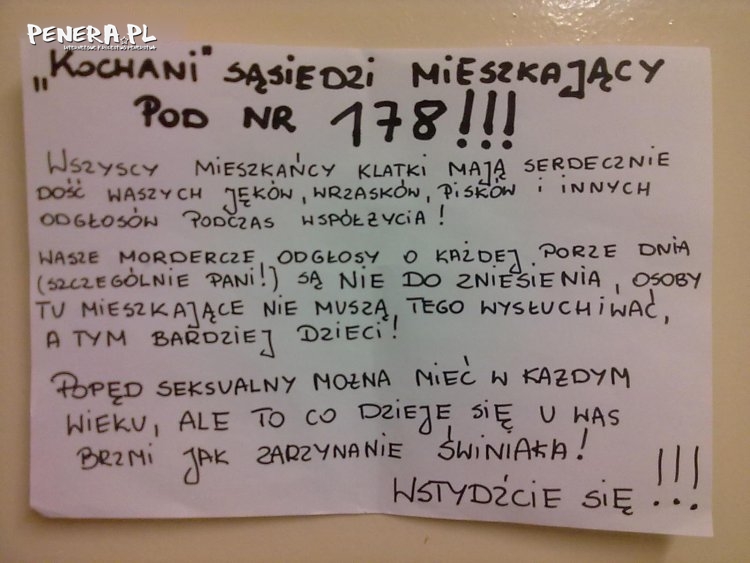 PENERA.PL
„KOCHANI" SĄSIEDZI MIESZKAJĄCY
POD NR 178!!!
WSZYSCY MIESZKAŃCY KLATKI MAJĄ SERDECZNIE
DOŚĆ WASZYCH JĘKÓW, WRZASKÓW, PISKÓW I INNYCH
ODGŁOSÓW PODCZAS WSPÓŁŻYCIA!
WASZE MORDERCZE ODGŁOSY O KAŻDEJ PORZE DNIA
(SZCZEGÓLNIE PANI!) SĄ NIE DO ZNIESIENIA, OSOBY
TU MIESZKAJĄCE NIE MUSZĄ TEGO WYSŁUCHIWAĆ,
A TYM BARDZIEJ DZIECI!
POPĘD SEKSUALNY MOŻNA MIEĆ W KAŻDYM
WIEKU, ALE TO CO DZIEJE SIĘ U WAS
BRZMI JAK ZARZYNANIE ŚWINIAKA!
WSTYDŹCIE SIĘ!!!